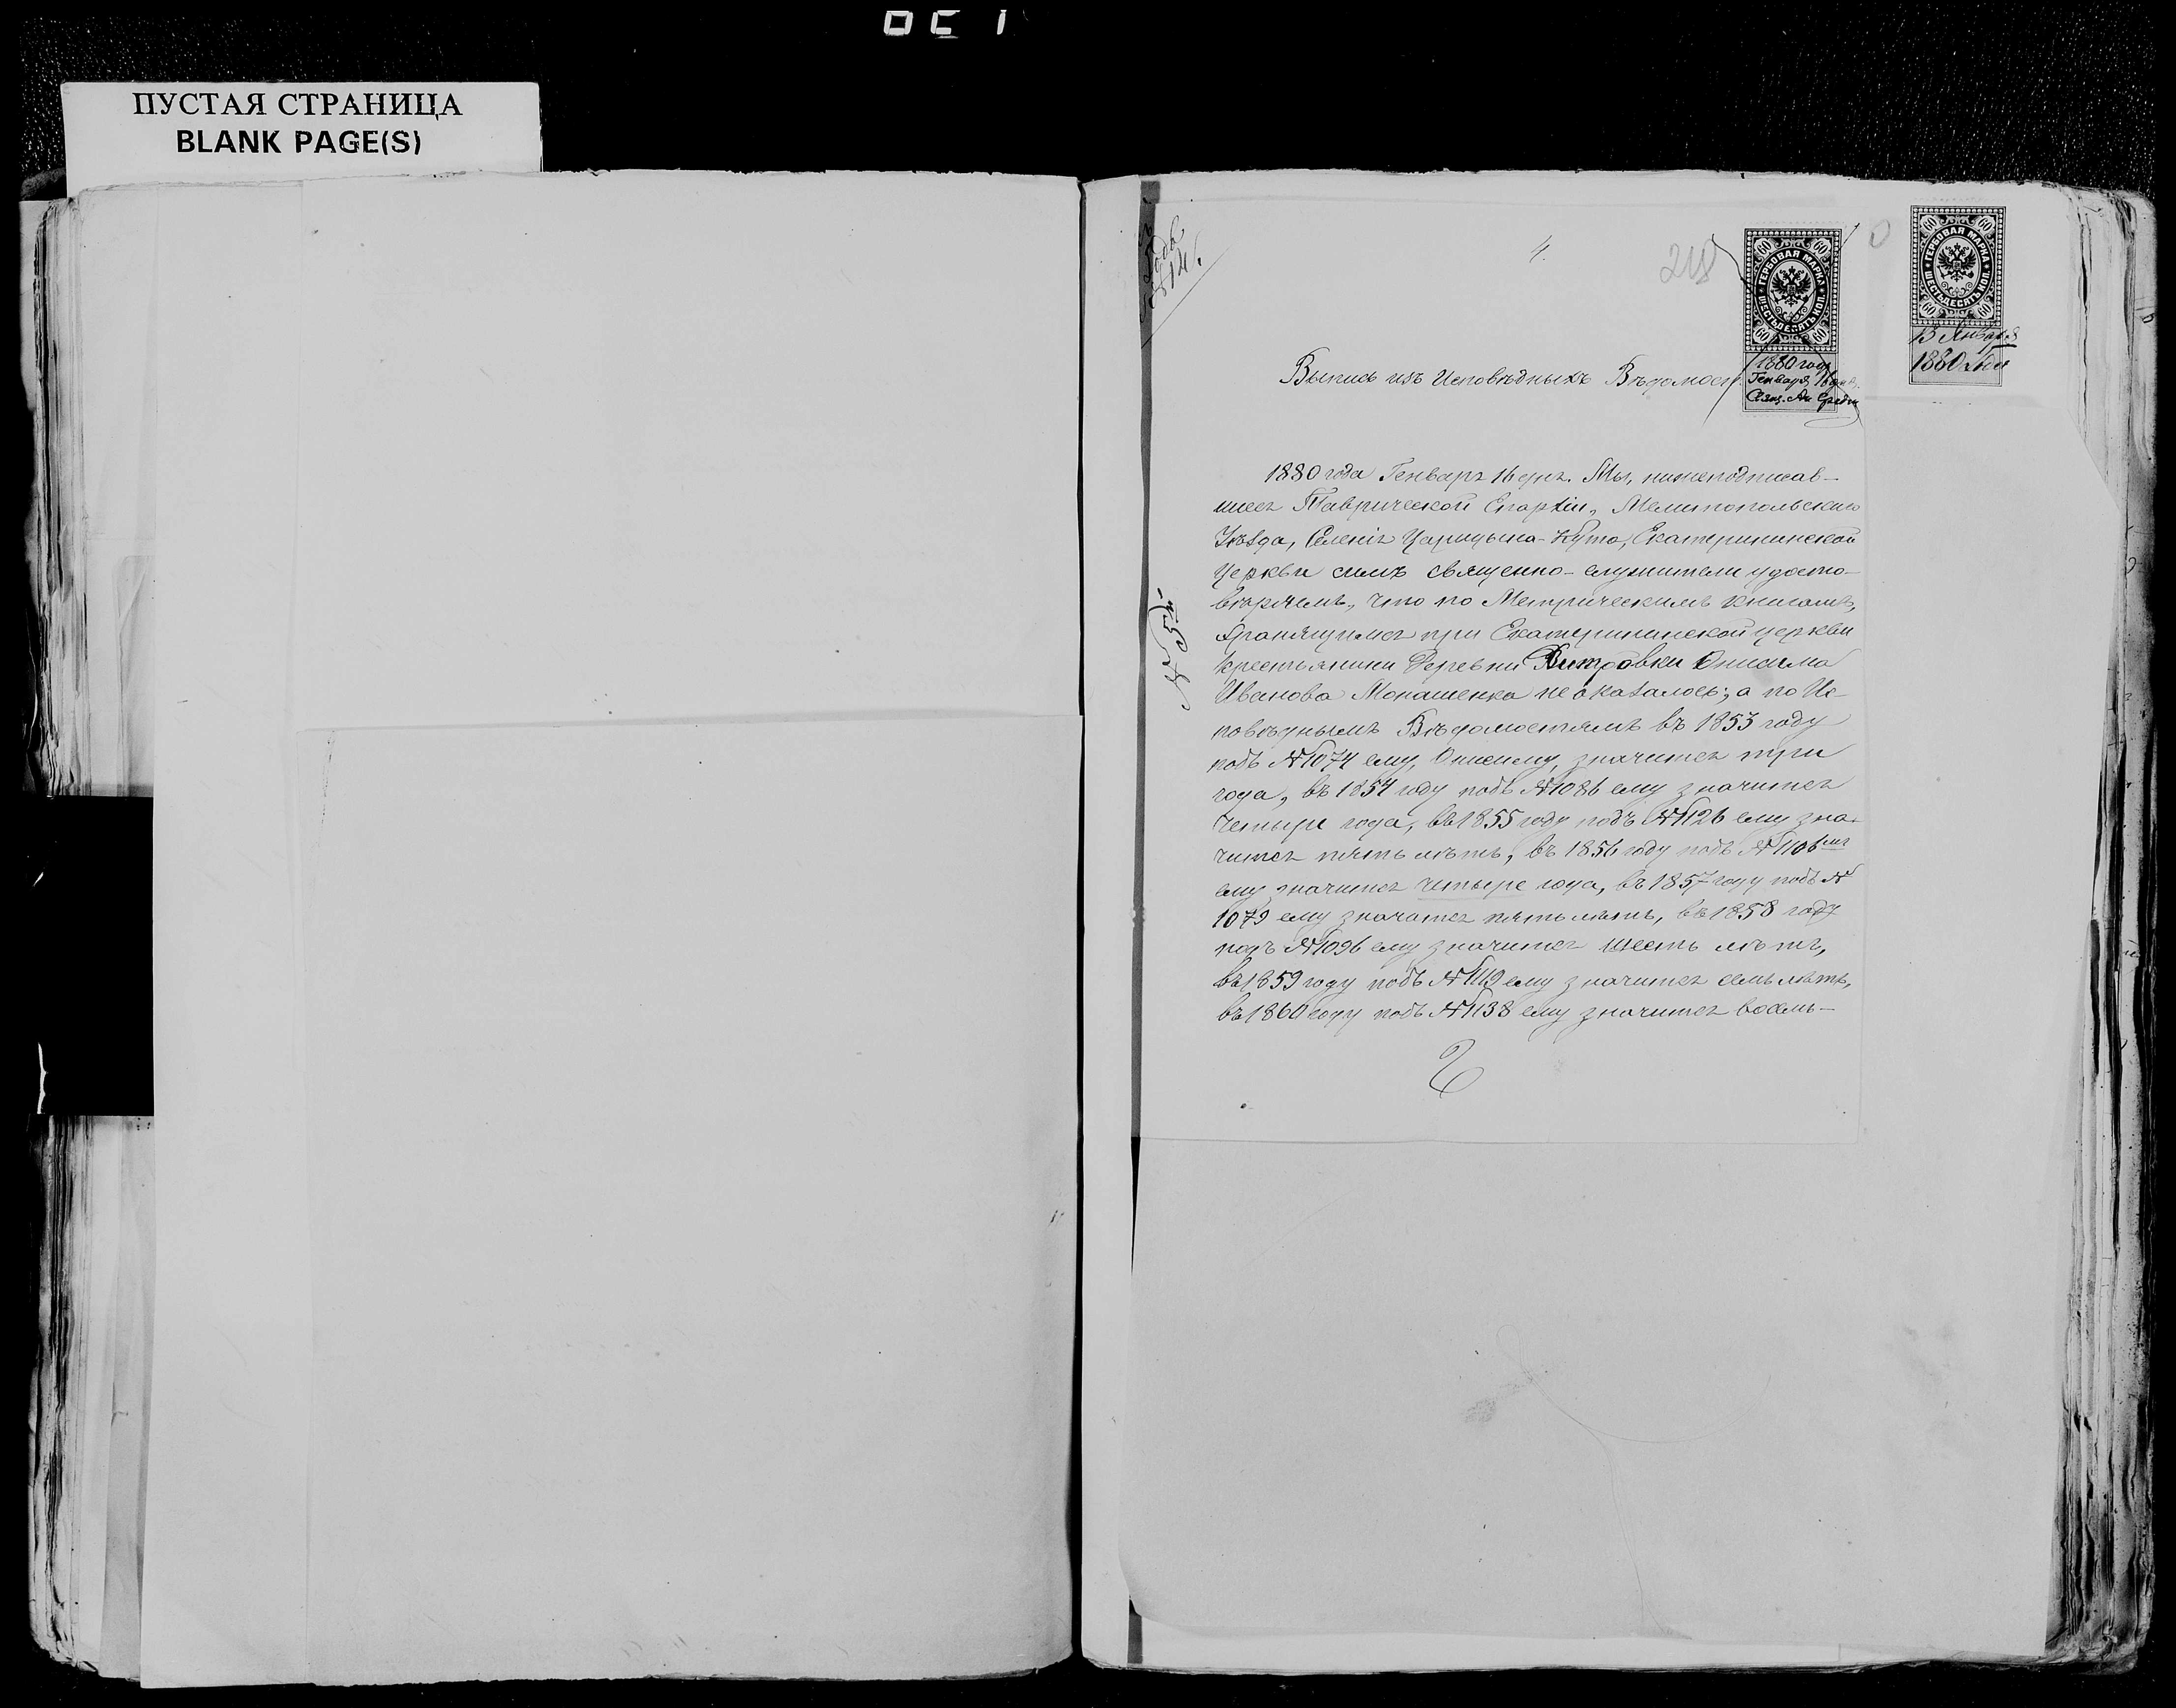 ПУСТАЯ СТРАНИЦА
BLANK PAGE(S)
4.
218
ГЕРБОВАЯ МАРКА
ШЕСТЬДЕСЯТЪ КОП.
60 60 60 60
1880 года
Генваря 16 дня.
ГЕРБОВАЯ МАРКА
ШЕСТЬДЕСЯТЪ КОП.
60 60 60 60
13 Января
1880
Выпись изъ Исповѣдныхъ Вѣдомост
1880 года Генваря 16 дня. Мы, нижеподписав-
шиеся Таврической Епархіи, Мелитопольскаго
Уѣзда, Селенія Царицына-Кута, Екатерининской
Церкви симъ священно-служители удосто-
вѣряемъ, что по Метрическимъ книгамъ,
хранящимся при Екатерининской церкви
крестьянина Деревни Онисима
Иванова Монашенка не оказалось; а по Ис-
повѣднымъ Вѣдомостямъ въ 1853 году
подъ № 1074 ему, Онисиму, значится три
года, въ 1854 году подъ № 1086 ему значится
четыре года, въ 1855 году подъ № 1126 ему зна-
чится пять лѣтъ, въ 1856 году подъ № 1106
ему значится четыре года, въ 1857 году подъ №
1079 ему значится пять лѣтъ, въ 1858 году
подъ № 1096 ему значится шесть лѣтъ,
въ 1859 году подъ № 1119 ему значится семь лѣтъ,
въ 1860 году подъ № 1138 ему значится восемь-